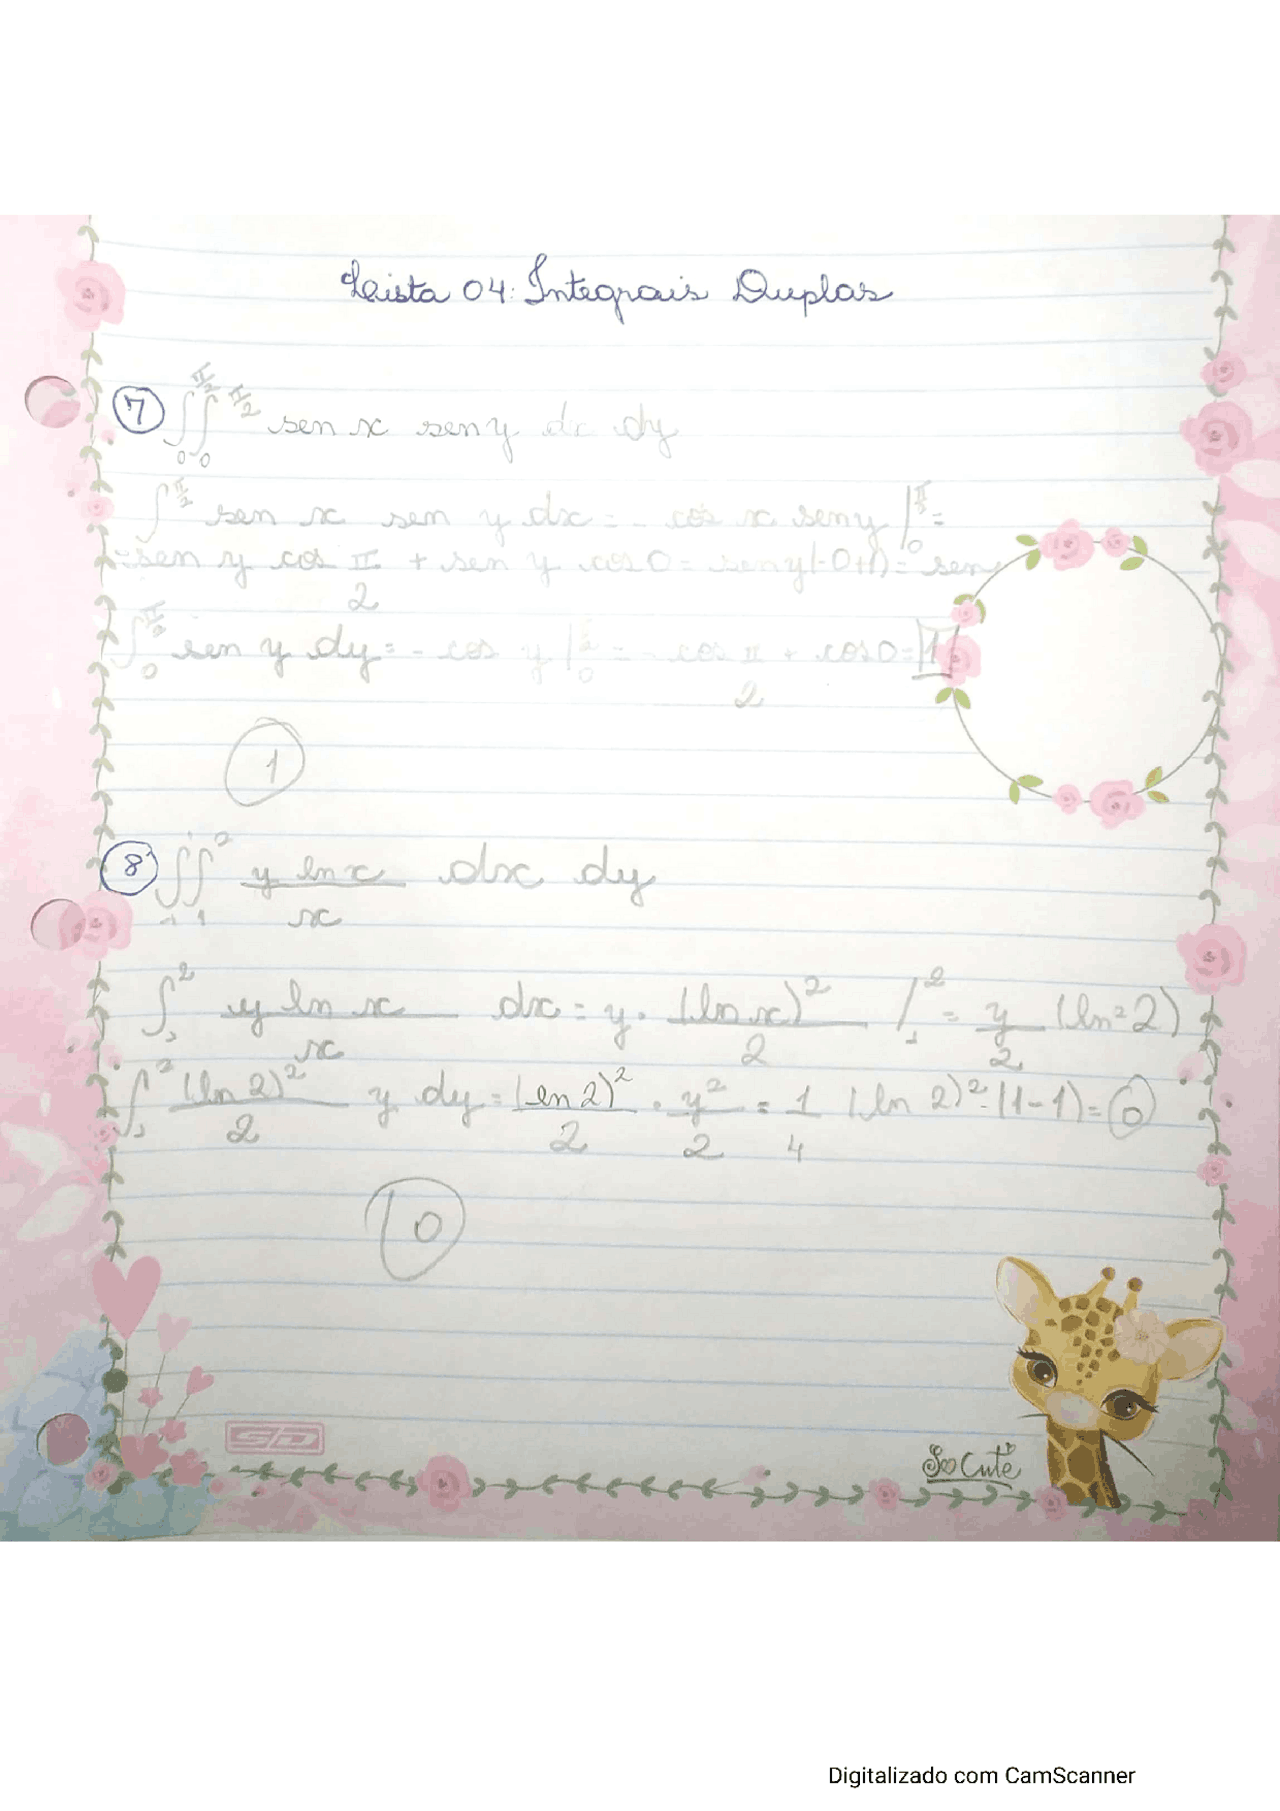 Lista 04: Integrais Duplas
7 ∫∫ 0 0 π/2 π/2 sen x sen y dx dy
∫ π/2 sen x sen y dx = - cos x sen y | 0 π/2 =
= sen y cos π/2 + sen y cos 0 = sen y (-0+1) = sen
∫ 0 π/2 sen y dy = - cos y | 0 = - cos π/2 + cos 0 = 1
1
8 ∫∫ -1 1 2 y ln x / x dx dy
∫ 1 2 y ln x / x dx = y . (ln x)² / 2 | 1 2 = y/2 (ln² 2)
∫ (ln 2)² / 2 y dy = (ln 2)² / 2 . y² / 2 = 1/4 (ln 2)² . (1-1) = 0
0
SD
So Cute
Digitalizado com CamScanner